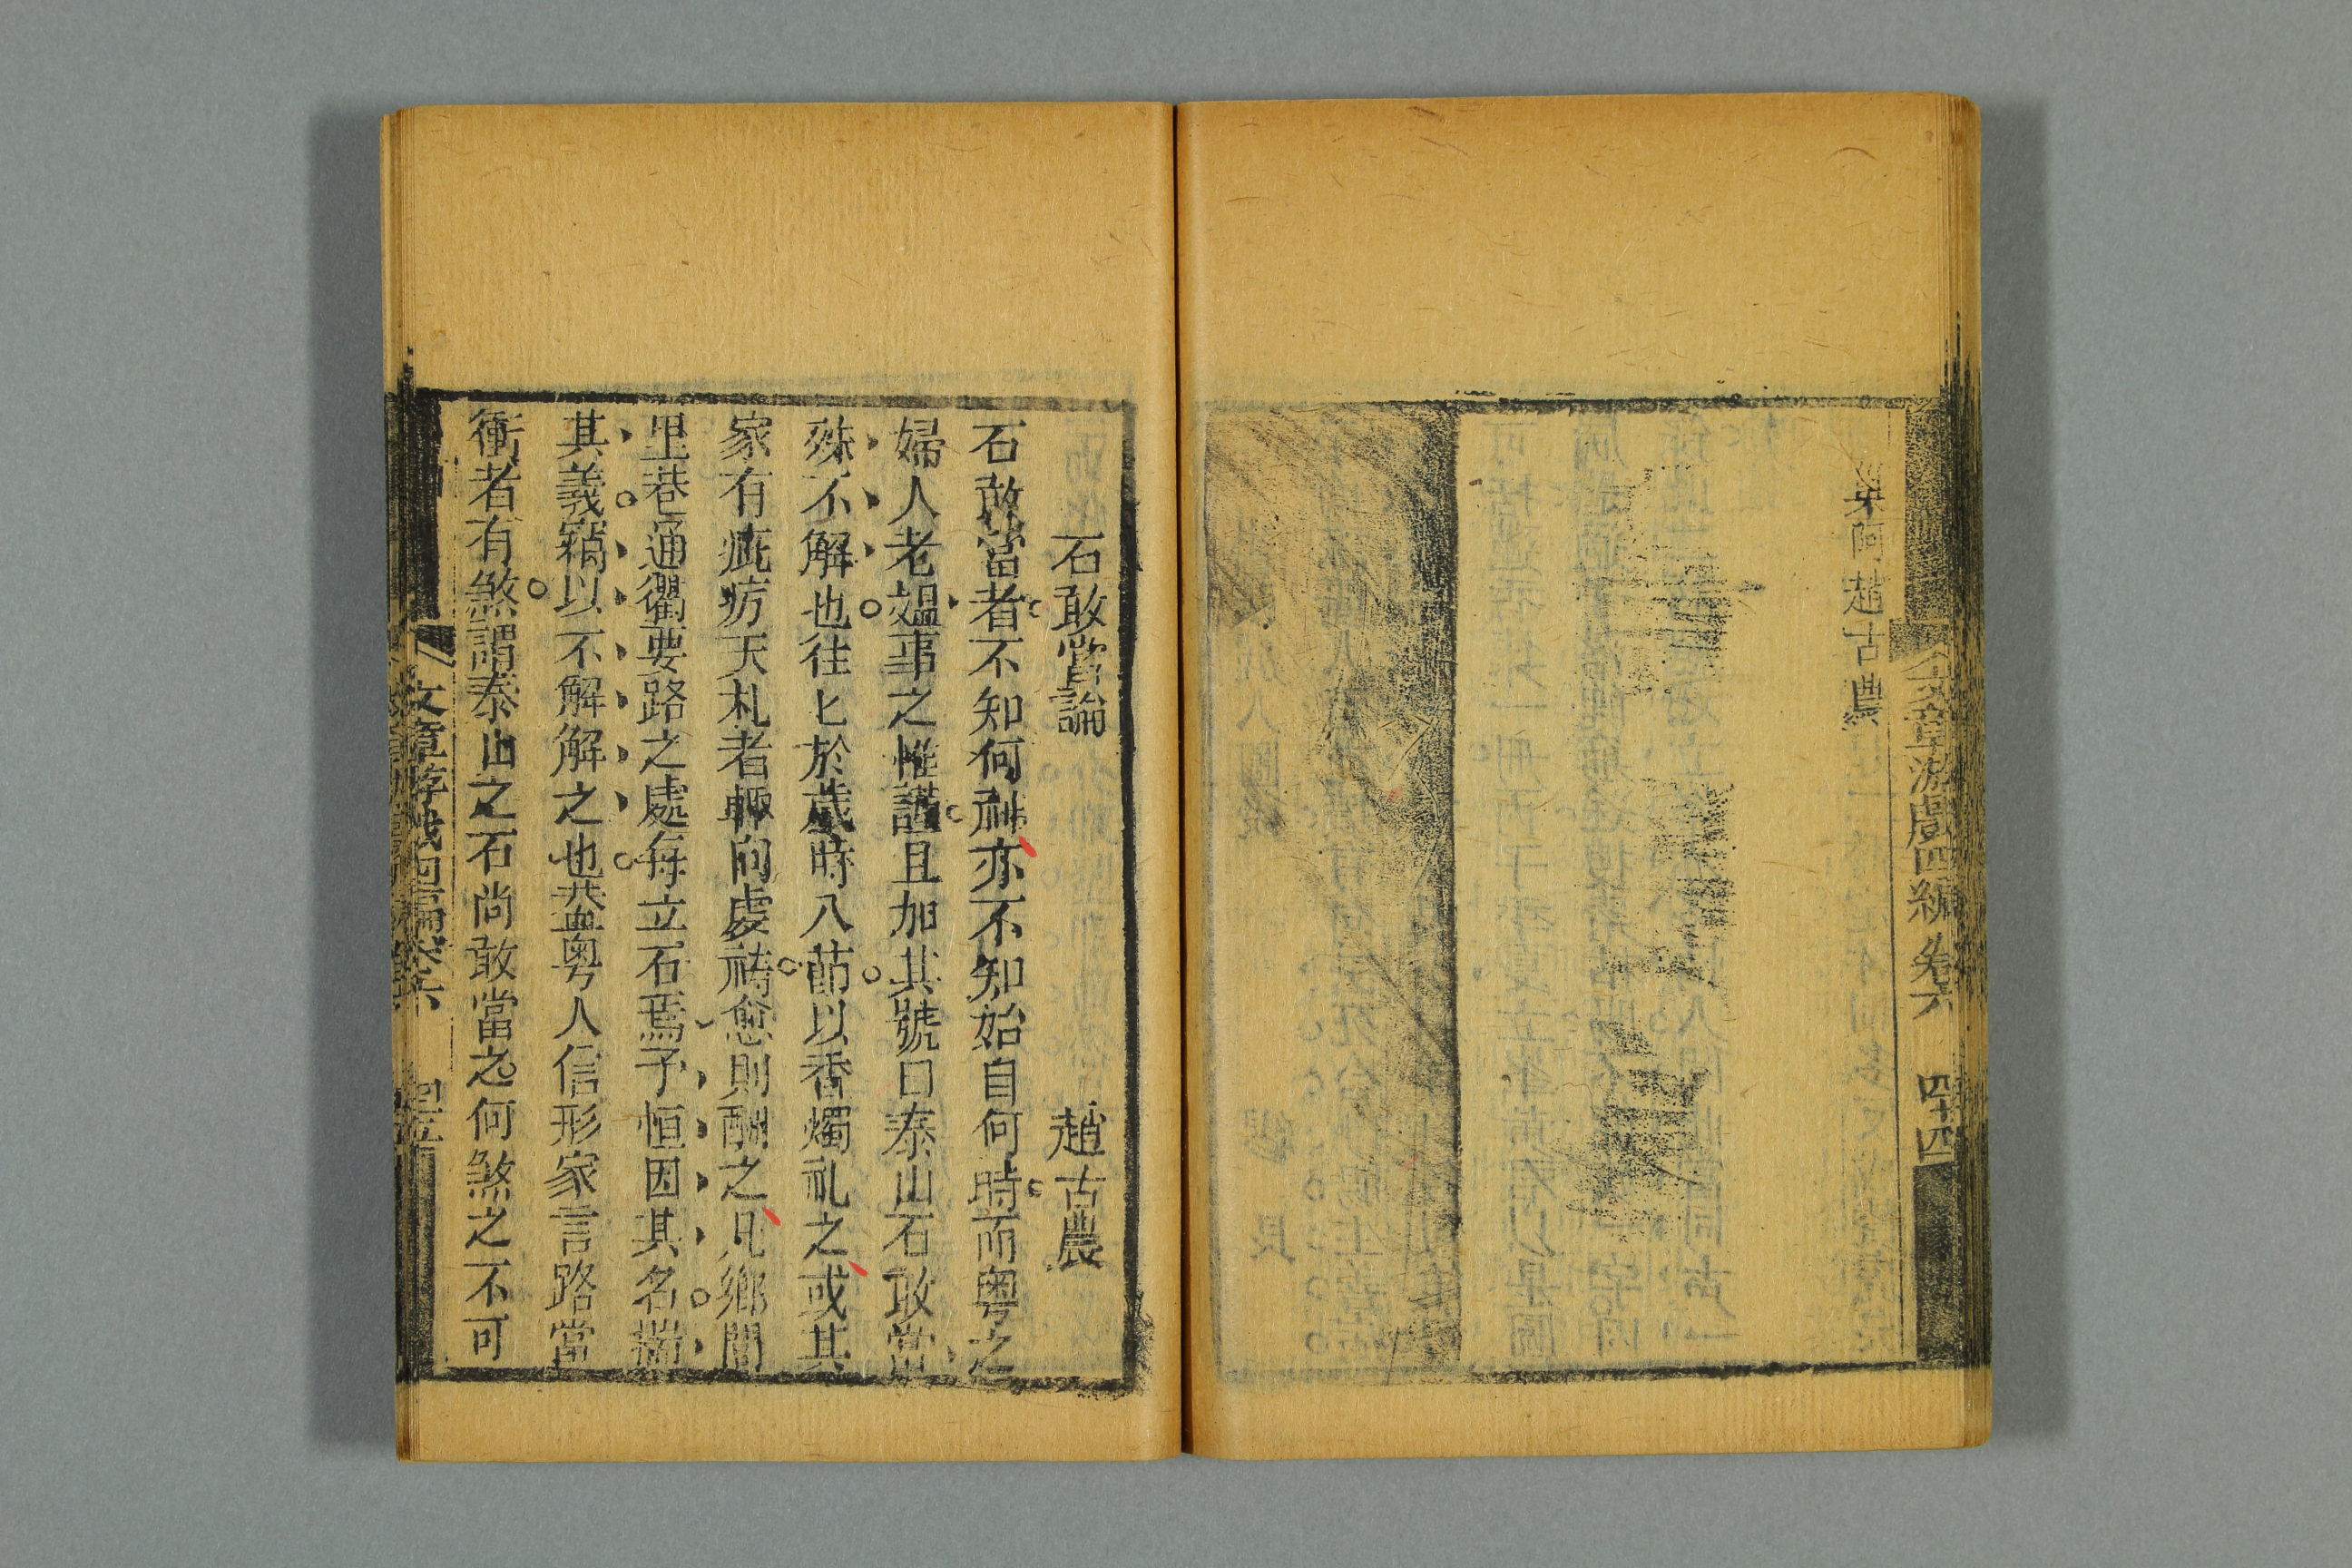 阿趙古農
文章游戲四編 卷六 四十四
石敢當論 趙古農
石敢當者不知何神亦不知始自何時而粵之
婦人老媪事之惟謹且加其號曰泰山石敢當
殊不解也往匕於歲時八節以香燭礼之或其
家有疵疠天札者輙向處祷愈則酧之凡鄉間
里巷通衢要路之處每立石焉予恒因其名揣
其義竊以不解解之也盖粵人信形家言路當
衝者有煞謂泰山之石尚敢當之何煞之不可
文章游戲四編卷六